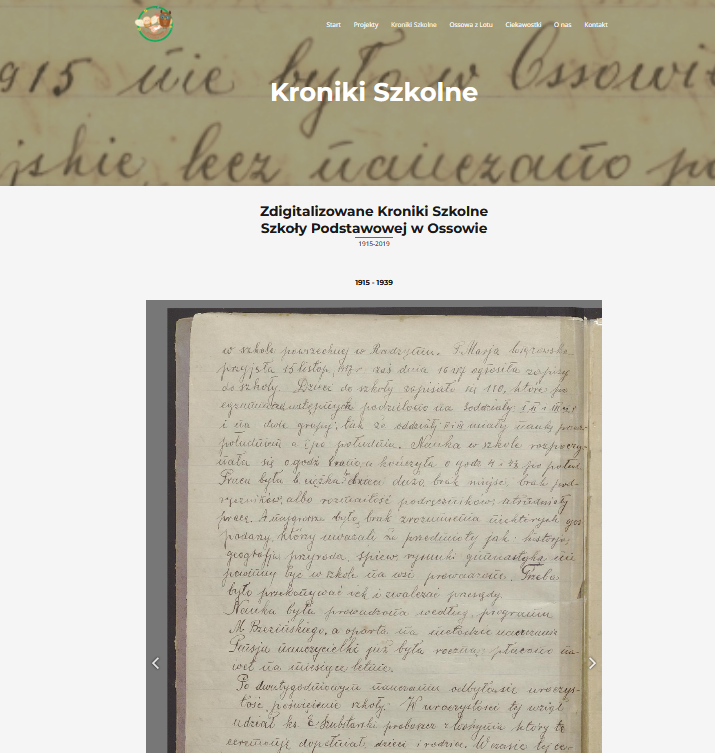 Start Projekty Kroniki Szkolne Ossowa z Lotu Ciekawostki O nas Kontakt
1915 nie było w Ossowi
jskie, lecz nauczano po
Kroniki Szkolne
Zdigitalizowane Kroniki Szkolne
Szkoły Podstawowej w Ossowie
1915-2019
1915 - 1939
w szkole powszechnej w Radzyminie. P. Marja
przyjęła 15 listop. zaś dnia 16 ogłosiła zapisy
do szkoły. Dzieci do szkoły zapisało się 110, które po
egzaminach wstępnych podzielono na
i na dwie grupy, tak że oddziały miały naukę przed
południem a i po południu. Nauka w szkole rozpoczy-
nała się o godz rano, a kończyła o godz 4 po połud.
Praca była b. ciężka: dzieci dużo, brak miejsc, brak pod-
ręczników, albo rozmaitość podręczników, utrudniały
pracę. A najgorsze było, brak zrozumienia niektórych gos
podarzy, którzy uważali że przedmioty jak: historja,
geografja, przyroda, śpiew, rysunki gimnastyka nie
powinny być w szkole na wsi prowadzone. Trzeba
było przekonywać ich i zwalczać przesądy.
Nauka była prowadzona według programu
M. Brzezińskiego, a oparta na metodzie nauczania
Pensja nauczycielki już była roczna, płacono na-
wet na miesiące letnie.
Po dwutygodniowym nauczaniu odbyła się uroczys-
tość poświęcenia szkoły. W uroczystości tej wziął
udział ks. proboszcz z który te
ceremonję dopełniał, dzieci i rodzice. W czasie tej